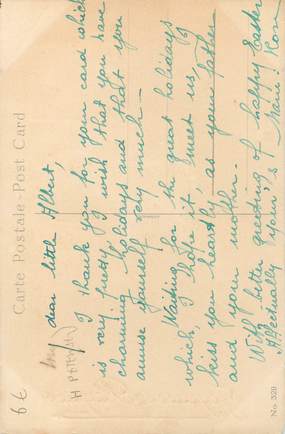 Carte Postale - Post Card
My
dear little Albert,
I thank you for your card which
is very pretty. I wish that you have
charming holidays and that you
amuse yourself very much —
Waiting for the great holidays
which, I hope it, meet us, I
kiss you heartly, as your father
and your mother.
With better greeting of happy Easter
Affectually your's
No 329
66